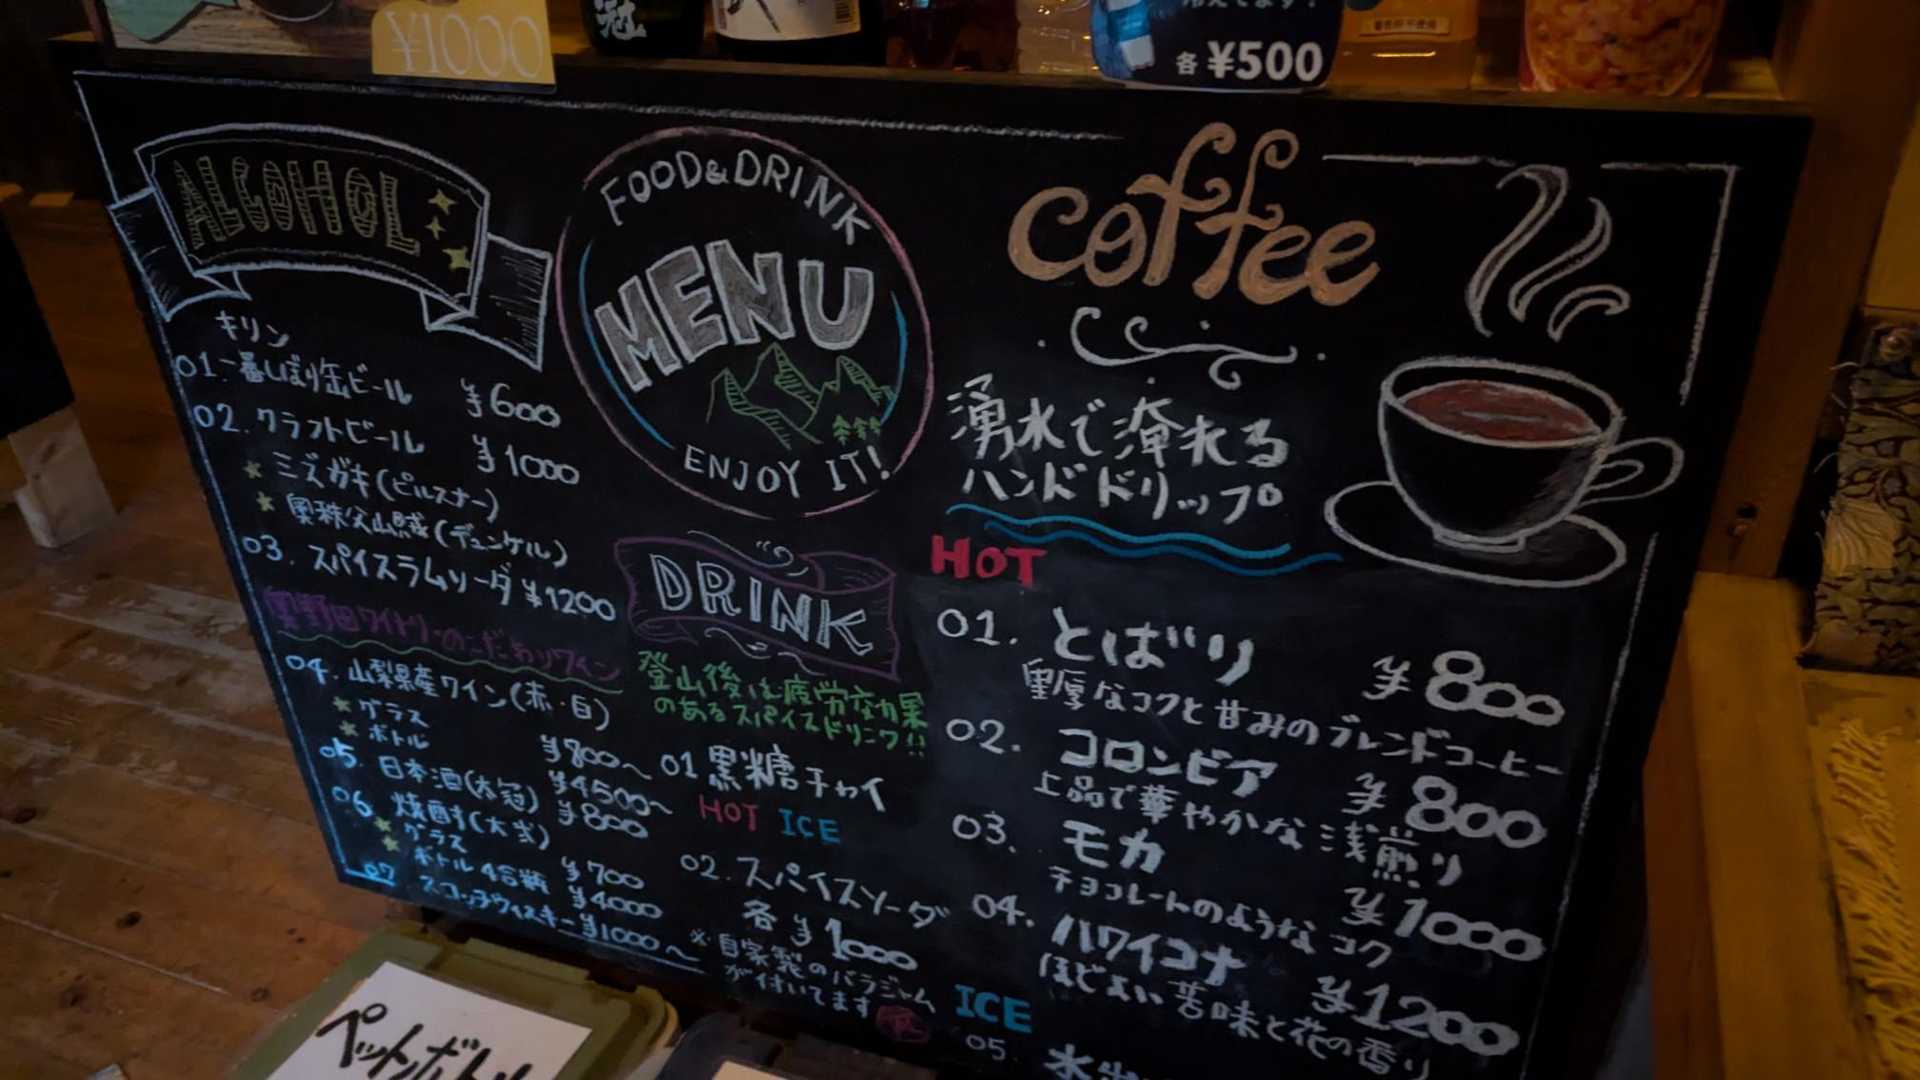 ¥1000
冠
各 ¥500
ALCOHOL
キリン
01. 一番しぼり缶ビール ¥600
02. クラフトビール ¥1000
ミズガキ(ピルスナー)
奥秩父山賊(デュンケル)
03. スパイスラムソーダ ¥1200
奥野田ワイナリーのこだわりワイン
04. 山梨県産ワイン(赤・白)
グラス ¥800〜
ボトル ¥4500〜
05. 日本酒(太冠) ¥800
06. 焼酎(大弐)
グラス ¥700
ボトル 4合瓶 ¥4000
07. スコッチウィスキー ¥1000〜
FOOD&DRINK
MENU
ENJOY IT!
DRINK
登山後は疲労効果
のあるスパイスドリンク!!
01 黒糖チャイ
HOT ICE
02. スパイスソーダ
各 ¥1000
※自家製のバラジャム
が付いてます
coffee
湧水で淹れる
ハンドドリップ
HOT
01. とばり ¥800
重厚なコクと甘みのブレンドコーヒー
02. コロンビア ¥800
上品で華やかな浅煎り
03. モカ ¥1000
チョコレートのようなコク
04. ハワイコナ ¥1200
ほどよい苦味と花の香り
ICE
05. 水出
ペットボトル